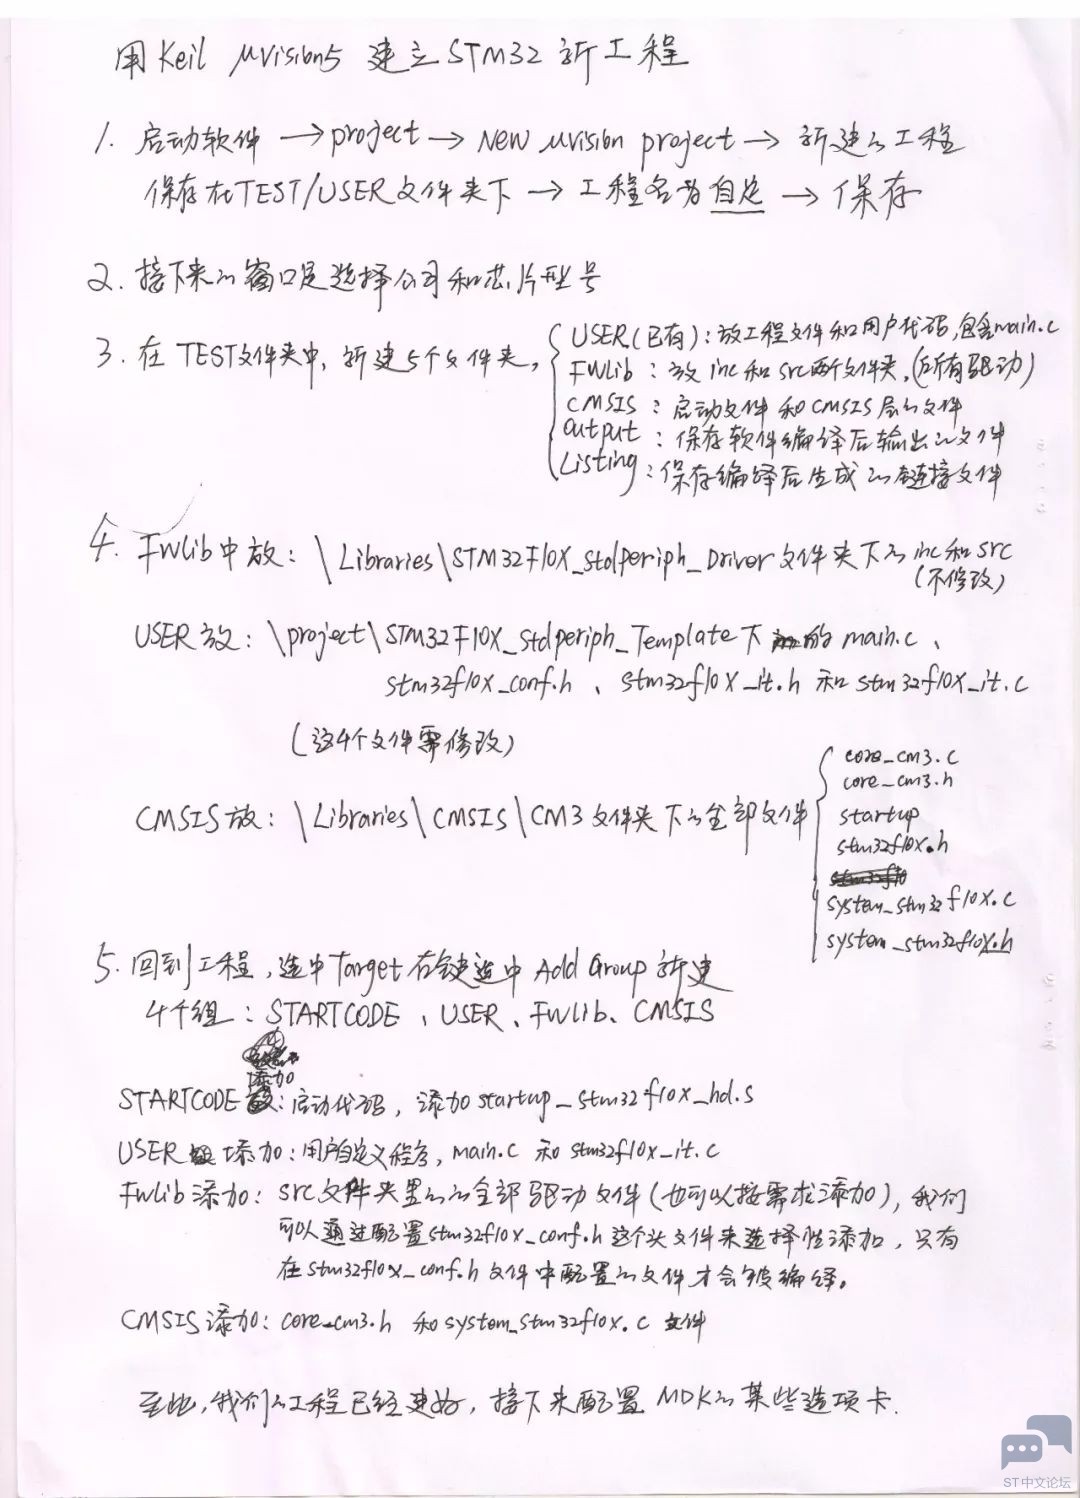 用Keil μVision5 建立STM32 新工程
1. 启动软件 → project → New μvision project → 新建的工程
保存在TEST/USER文件夹下 → 工程名为自定 → 保存
2. 接下来的窗口是选择公司和芯片型号
3. 在 TEST文件夹中, 新建5个文件夹,
USER(已有): 放工程文件和用户代码,包含main.c
FWlib : 放 inc 和 src两个文件夹.(所有驱动)
CMSIS : 启动文件 和CMSIS层的文件
output : 保存软件编译后输出的文件
Listing : 保存编译后生成的链接文件
4. FWlib中放: \Libraries\STM32F10X_Stdperiph_Driver文件夹下的inc和src
(不修改)
USER放: \project\STM32F10X_Stdperiph_Template下 的 main.c、
stm32f10X_conf.h 、stm32f10X_it.h 和 stm32f10X_it.c
(这4个文件需修改)
CMSIS放: \Libraries\CMSIS\CM3文件夹下的全部文件
core_cm3.c
core_cm3.h
startup
stm32f10x.h
stm32f10
system_stm32f10x.c
system_stm32f10x.h
5. 回到工程,选中Target右键选中 Add Group 新建
4个组: STARTCODE 、USER、FWlib、CMSIS
添加
STARTCODE : 启动代码, 添加 startup_stm32f10X_hd.s
USER 添加: 用户自定义程序, main.c 和 stm32f10x_it.c
FWlib 添加: src文件夹里的的全部驱动文件(也可以按需求添加), 我们
可以通过配置stm32f10x_conf.h这个头文件来选择性添加, 只有
在stm32f10x_conf.h文件中配置的文件才会被编译。
CMSIS添加: core_cm3.h 和system_stm32f10x.c 文件
至此,我们的工程已经建好, 接下来配置 MDK的某些选项卡.
ST中文论坛